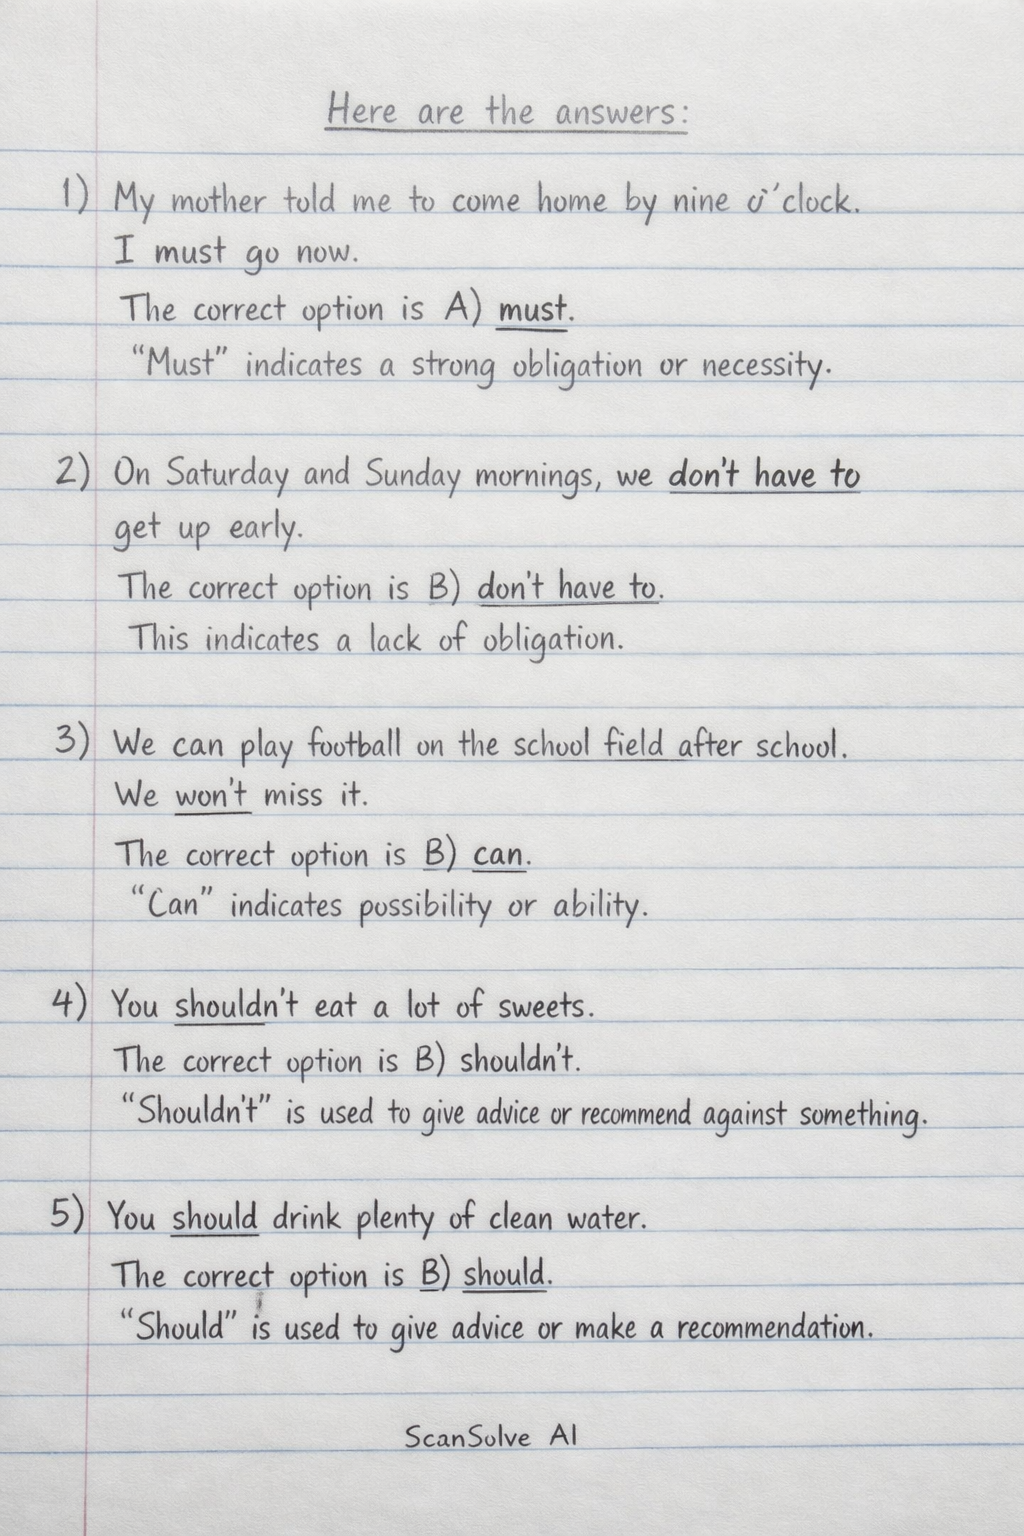 Here are the answers:
1) My mother told me to come home by nine o'clock.
I must go now.
The correct option is A) must.
"Must" indicates a strong obligation or necessity.
2) On Saturday and Sunday mornings, we don't have to
get up early.
The correct option is B) don't have to.
This indicates a lack of obligation.
3) We can play football on the school field after school.
We won't miss it.
The correct option is B) can.
"Can" indicates possibility or ability.
4) You shouldn't eat a lot of sweets.
The correct option is B) shouldn't.
"Shouldn't" is used to give advice or recommend against something.
5) You should drink plenty of clean water.
The correct option is B) should.
"Should" is used to give advice or make a recommendation.
ScanSolve AI